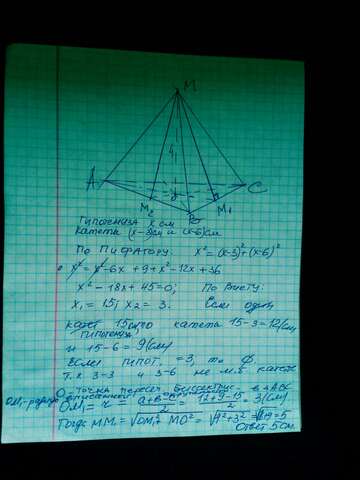 M
4
A
C
O
M₂
B
M₁
Гипотенуза x см
катета (x-3)см и (x-6)см
По Пифагору: x² = (x-3)² + (x-6)²
x² = x² - 6x + 9 + x² - 12x + 36
x² - 18x + 45 = 0; По Виету:
x₁ = 15; x₂ = 3. Если один
15 то катета 15-3=12(см)
гипотенуза
и 15-6 = 9(см)
Если гипот. =3, то ∅.
т.к 3-3 и 3-6 не м.б катет
O - точка пересеч. биссектрис в △ABC
OM₁ - радиус вписанной окружности
OM₁ = r = a+b-c/2 = 12+9-15/2 = 3(см)
Тогда MM₁ = √OM₁² + MO² = √4²+3² = 5
Ответ 5 см.